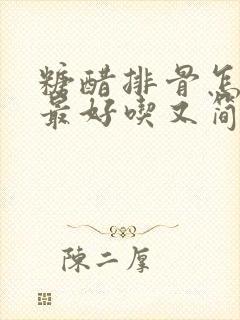 糖醋排骨怎
最好喫又简
陳二厚